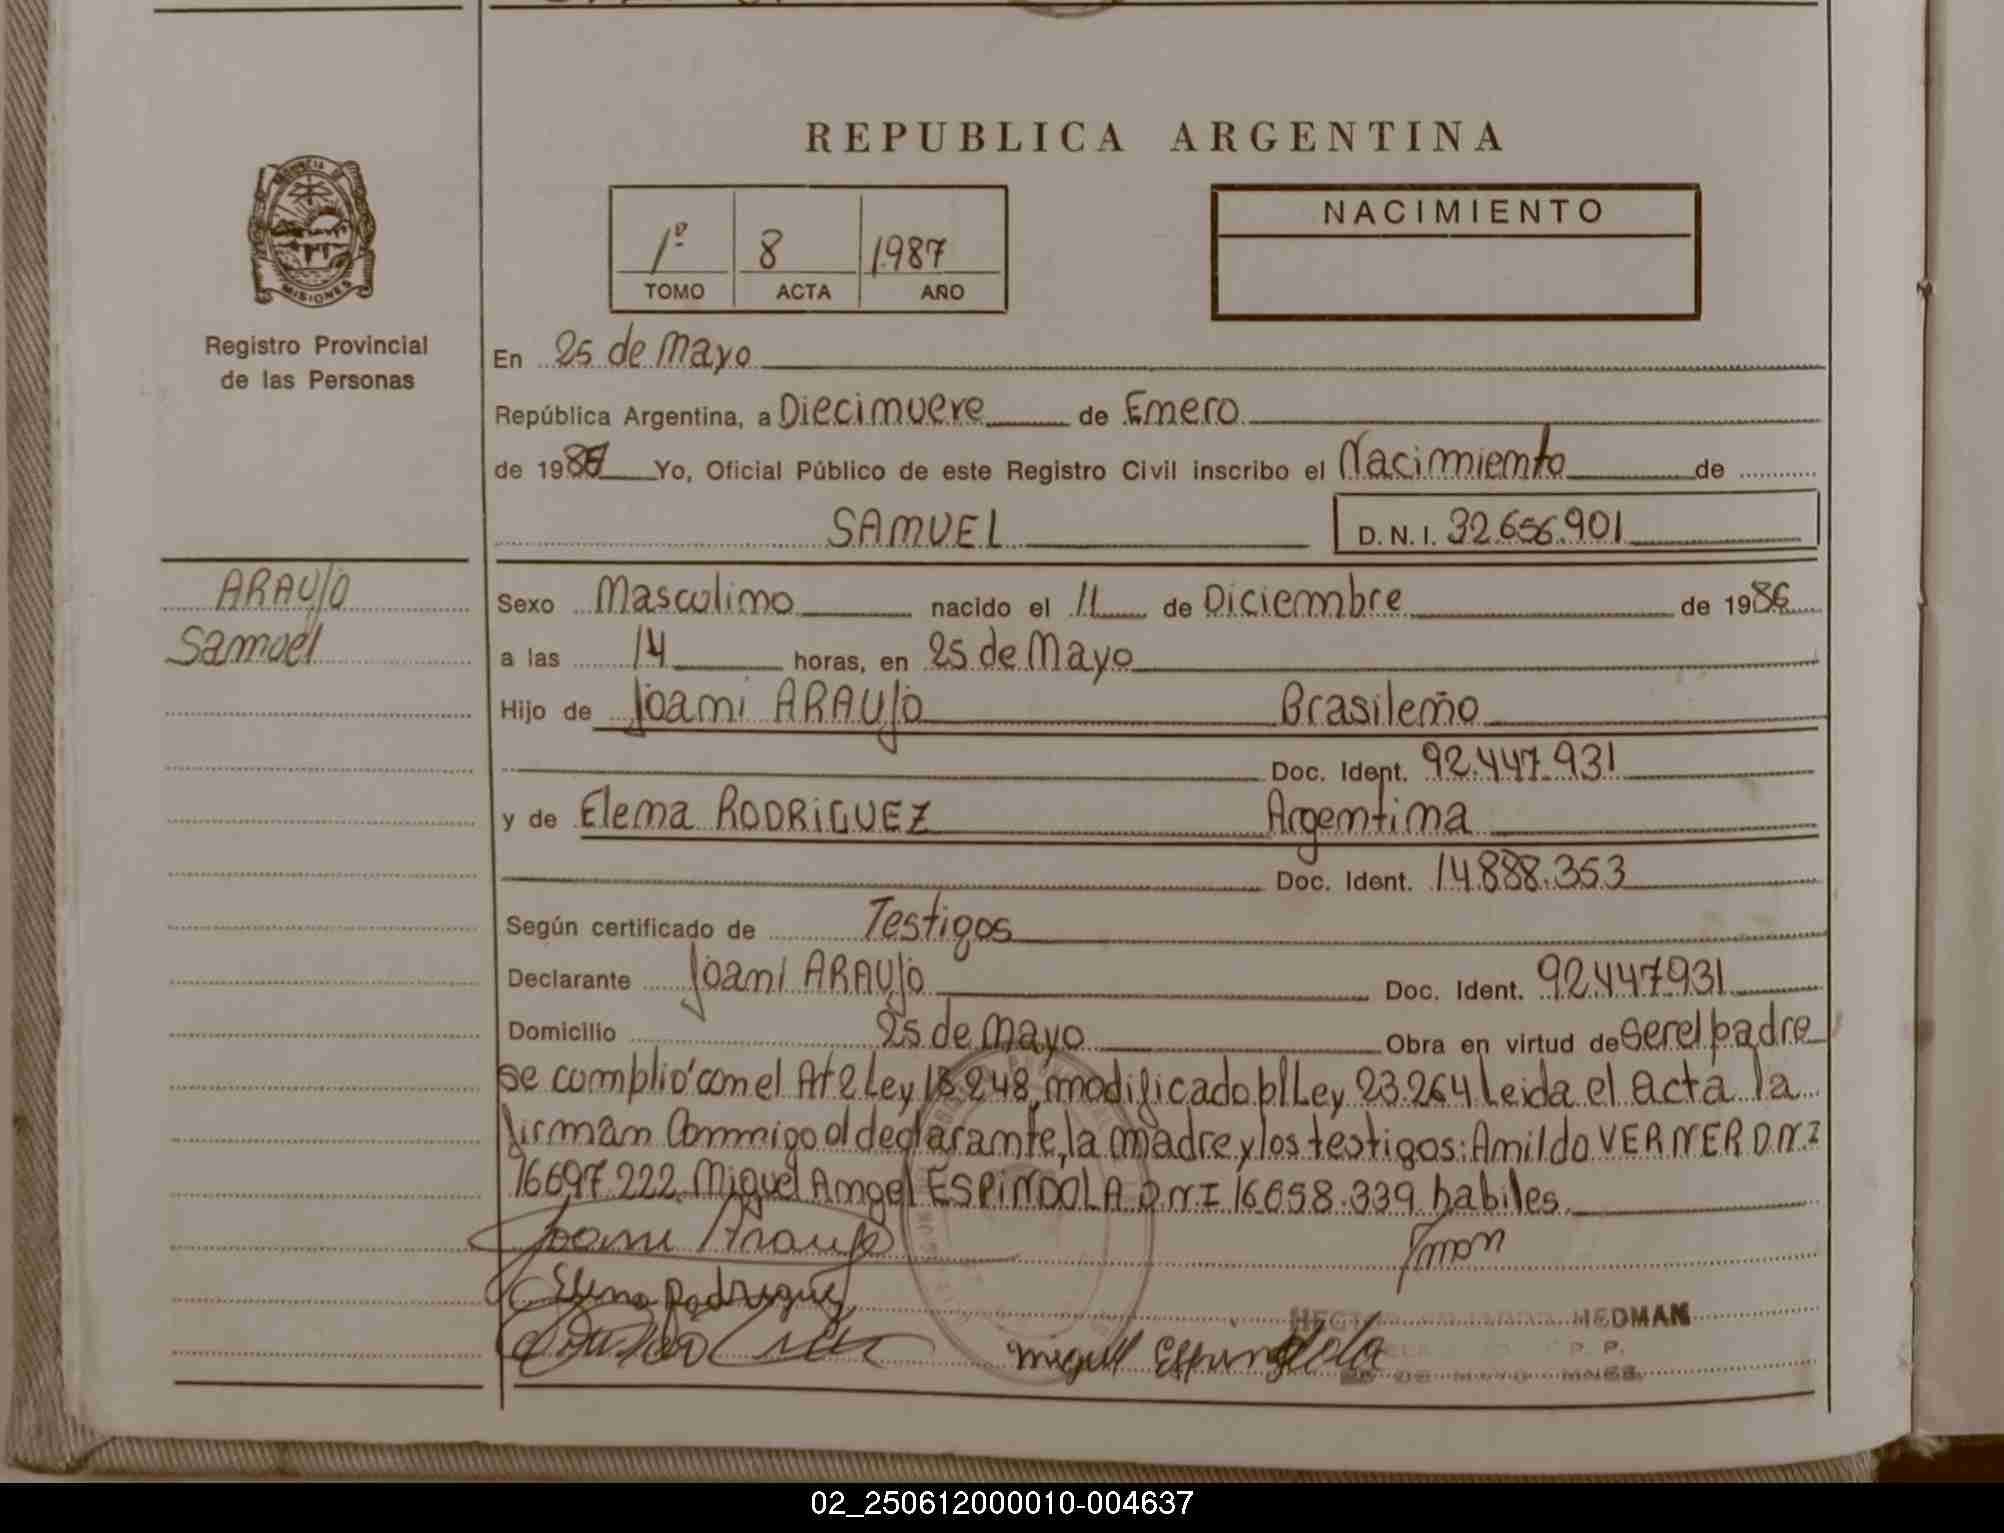 REPUBLICA ARGENTINA
1º 8 1987
TOMO ACTA AÑO
NACIMIENTO
MISIONES
Registro Provincial
de las Personas
En 25 de Mayo
República Argentina, a Diecinueve de Enero
de 1987 Yo, Oficial Público de este Registro Civil inscribo el Nacimiento de
SAMUEL D.N.I. 32.656.901
ARAUJO
Samuel
Sexo Masculino nacido el 11 de Diciembre de 1986
a las 14 horas, en 25 de Mayo
Hijo de Joani ARAUJO Brasileño
Doc. Ident. 92.447.931
y de Elena RODRiGUEZ Argentina
Doc. Ident. 14.888.353
Según certificado de Testigos
Declarante Joani ARAUJO Doc. Ident. 92.447931
Domicilio 25 de Mayo Obra en virtud de ser el padre
se cumplió con el At 2 Ley 18.248, modificado p/ Ley 23.264 Leida el acta la
firman Conmigo el declarante, la madre y los testigos: Amildo VERNER D.N.I
16697.222. Miguel Angel ESPiNDOLA D.N.I 16.658.339 habiles.
Joani Araujo
Elena Rodriguez
Miguel Espindola
HEDMAN
P. P.
25 DE MAYO - MNES.
02_250612000010-004637